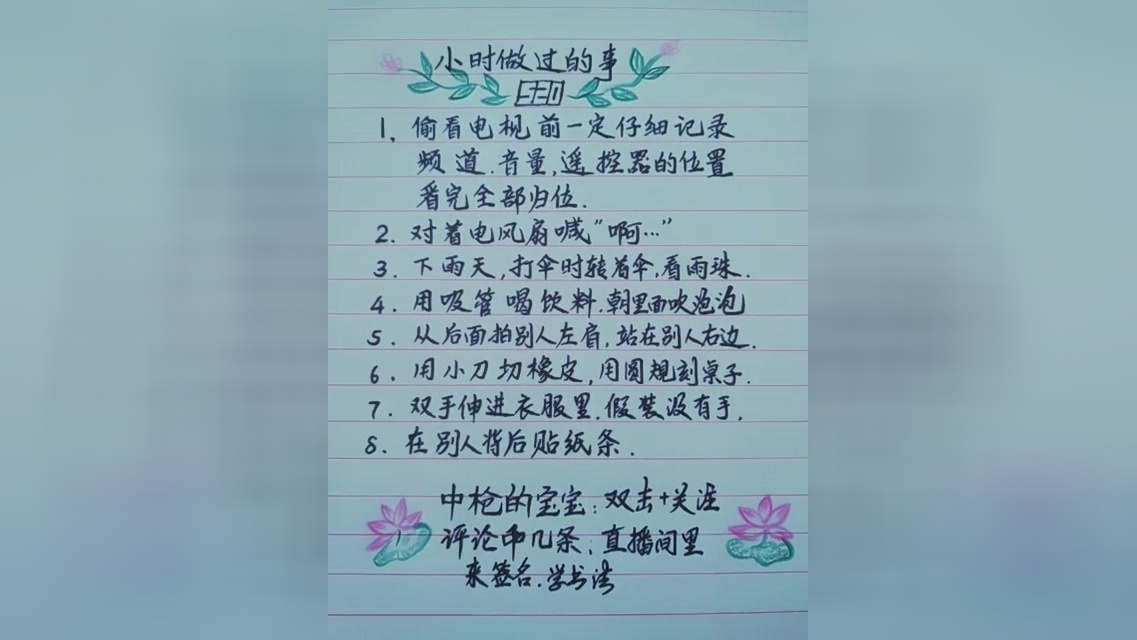 小时做过的事
1、偷看电视前一定仔细记录
频道.音量,遥控器的位置
看完全部归位.
2.对着电风扇喊“啊…”
3.下雨天,打伞时转着伞,看雨珠.
4.用吸管喝饮料.朝里面吹泡泡
5.从后面拍别人左肩,站在别人右边.
6.用小刀切橡皮,用圆规刻桌子.
7.双手伸进衣服里.假装没有手.
8.在别人背后贴纸条.
中枪的宝宝:双击+关注
评论中几条;直播间里
来签名.学书法